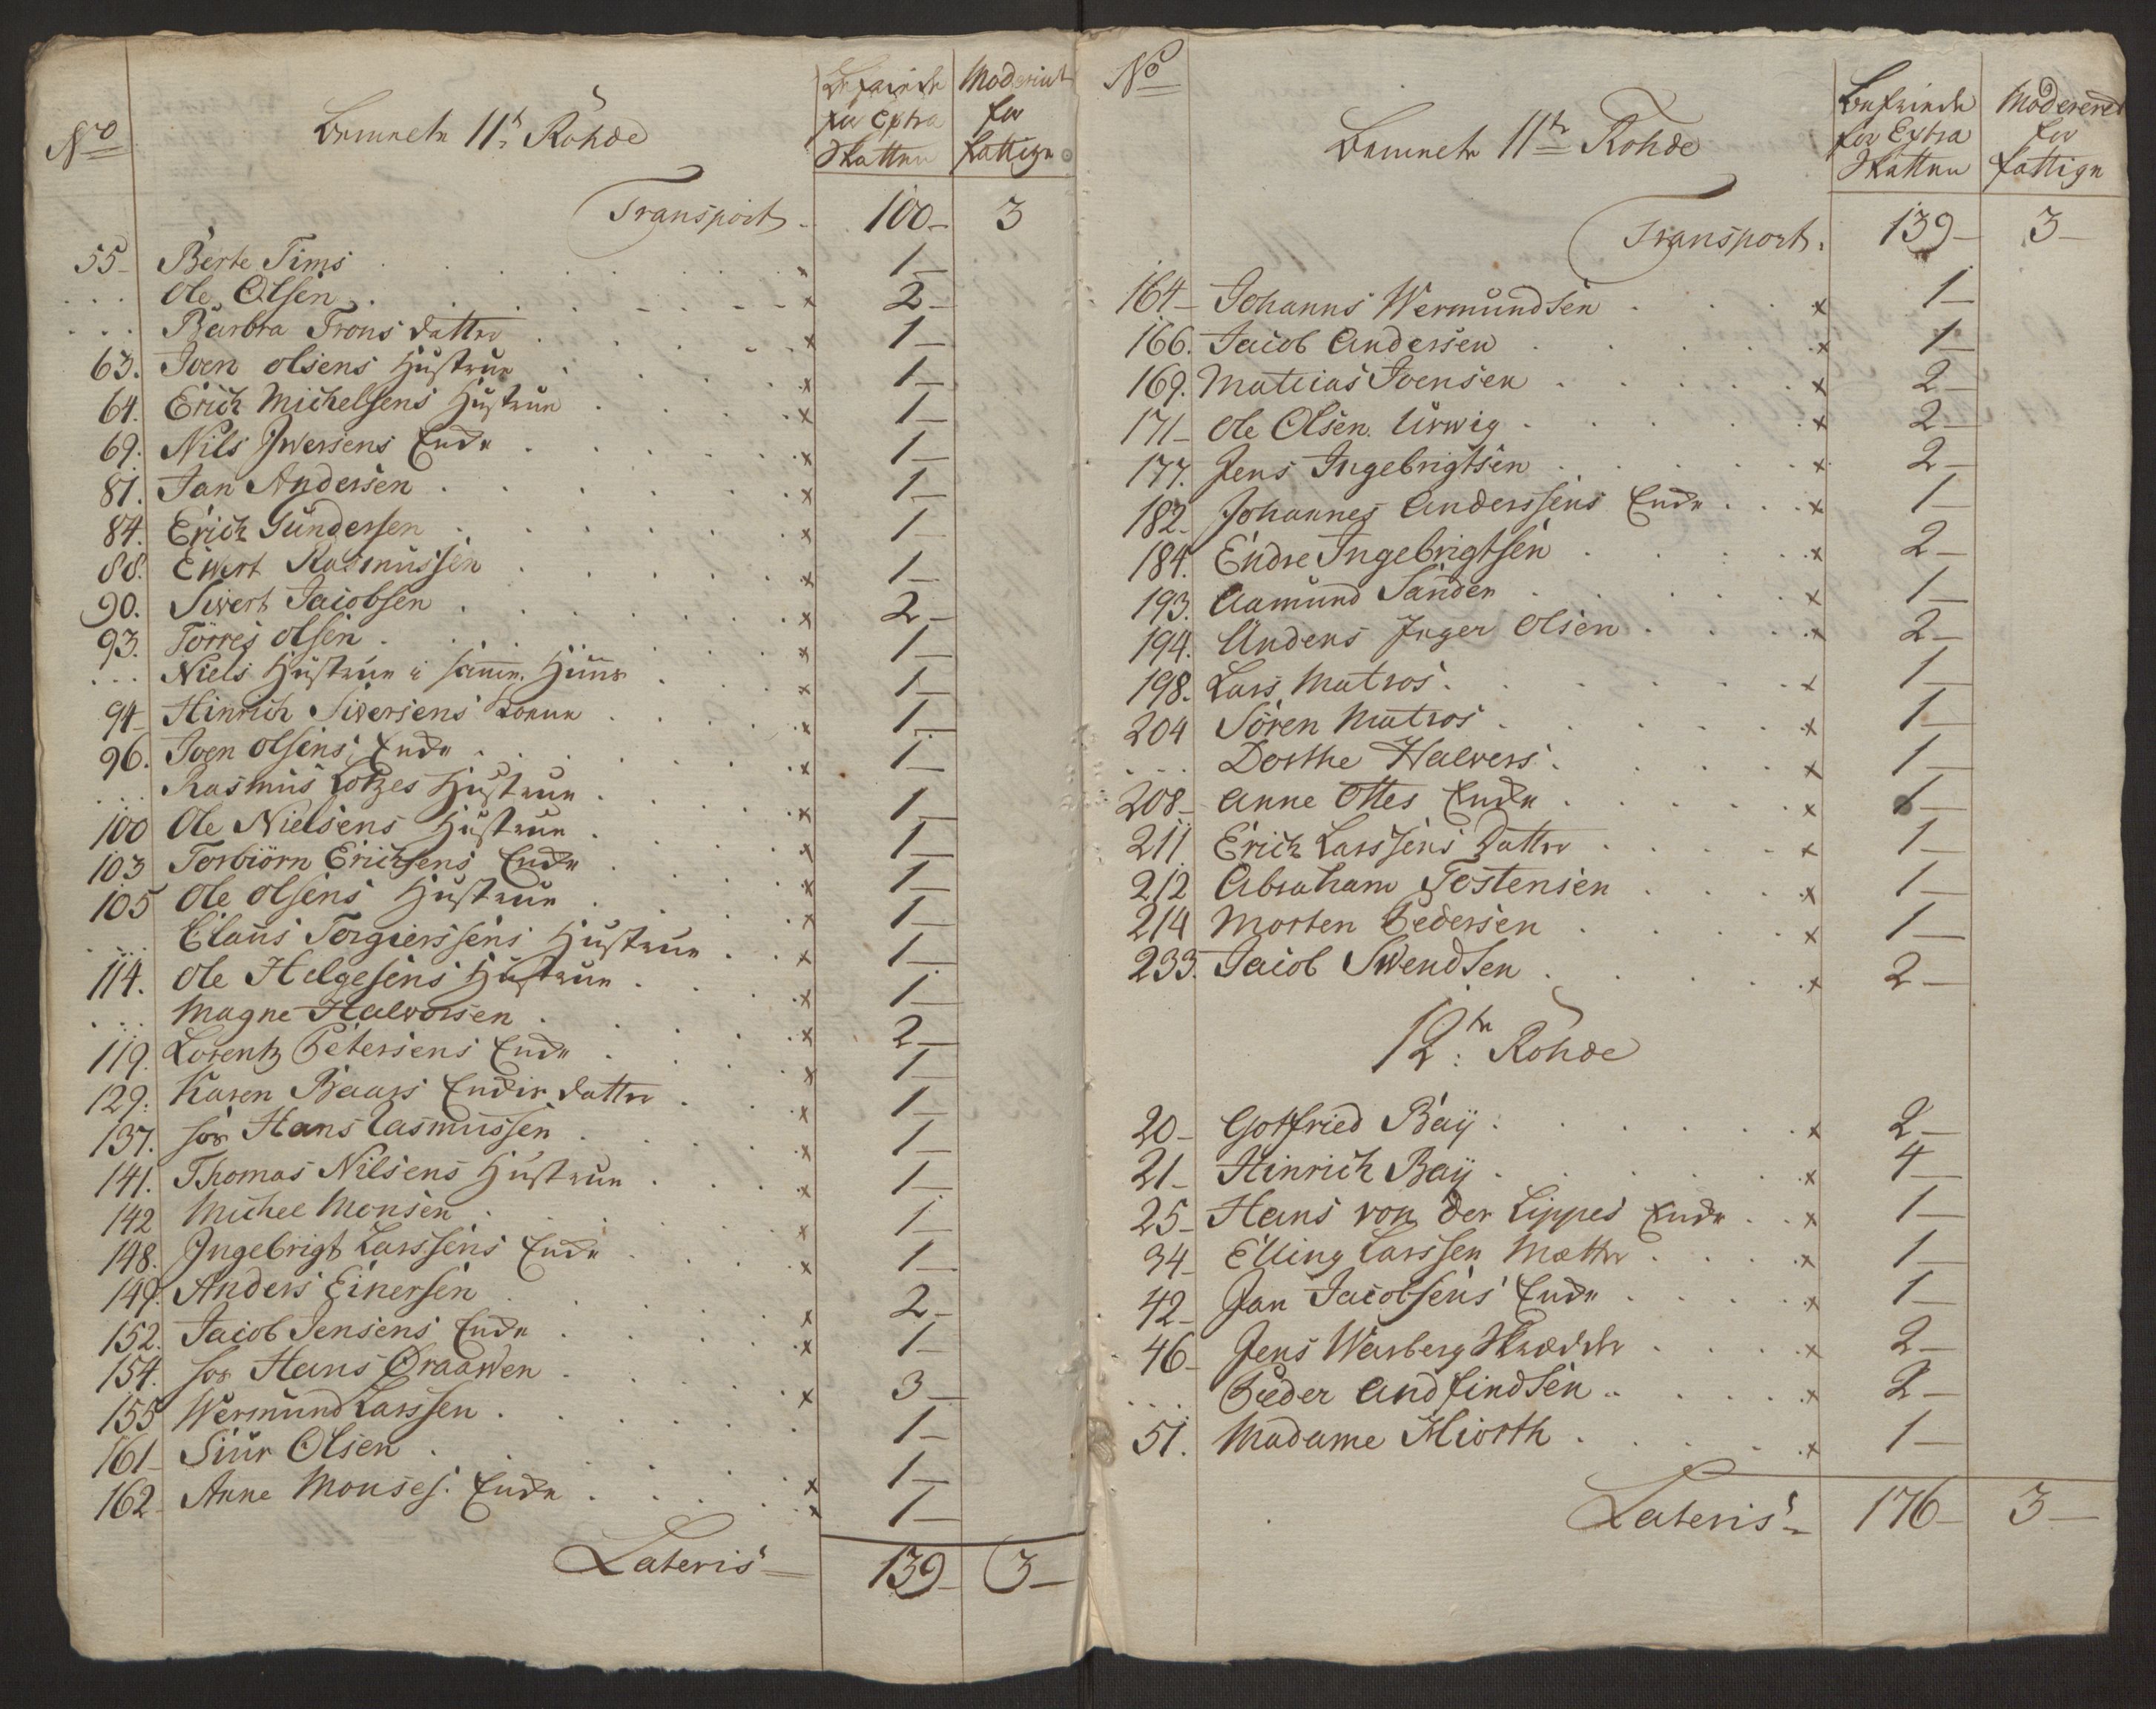 No
bemeete 11te Rohde
Befriede for Extra Skatten
Moderiert for fattige
Transport. 100- 3
55- Berte Tims 1-
... Ole Olsen x 2-
... Barbra Trons datter x 1-
63. Iven olsens Hustrue x 1-
64. Erich Michelsens Hustrue x 1-
69. Nils Iwersens Enke x 1-
81. Jan Andersen x 1-
84. Erich Gundersen x 1-
88. Ewert Rasmussen x 1-
90. Siwert Jacobsen x 2-
93. Törres olsen x 1-
... Niels Hustrue i samme Huus x 1-
94- Hinrich Siversens Konne x 1-
96. Iven olsens Enke x 1-
... Rasmus Lotzes Hustrue x 1-
100 Ole Nielsens Hustrue x 1-
103 Torbiörn Erichsens Enke x 1-
105 Ole olsens Hustrue x 1-
... Claus Torgierssens Hustrue x 1-
114. Ole Helgesens Hustrue x 1-
... Magne Halvorsen x 2-
119. Lorentz Petersens Enke x 1-
129. Karen Baars Endir datter x 1-
137. for Hans Rasmussen x 1-
141. Thomas Nilsens Hustrue x 1-
142 Michel Monsen x 1-
148. Ingebrigt Larssens Enke x 1-
149. Anders Einersen 2-
152. Jacob Jensens Enke x 1-
154. for Hans Graawen x 3-
155 Wermund Larssen 1-
161- Siur Olsen x 1-
162- Anne Monses. Enke x 1-
Lateris- 139- 3-
No
bemeete 11te Rohde
Befriede for Extra Skatten
Moderered for fattige
Transport. 139- 3-
164- Johanns Wermundsen x 1-
166. Jacob Andersen x 1-
169. Matias Ivensen x 2-
171- Ole Olsen Urwig x 2-
177. Jens Ingebrigtsen x 2-
182- Johannes Anderssens Enke x 1-
184. Endre Ingebrigtsen x 2-
193. Aamund Sanden x 1-
194. Anders Inger Olsen x 2-
198. Lars Matros x 1-
204 Sören Matros x 1-
... Dorthe Halvers x 1-
208- Anne Ottes Enke x 1-
211 Erich Larssens Datter x 1-
212 Abraham Tostensen x 1-
214 Morten Pedersen x 1-
233. Jacob Swendsen x 2-
12te Rohde
20- Gotfried Baÿ x 2-
21- Hinrich Baÿ x 4-
25- Hans von der Lippes Enke x 1-
34- Elling Larssen Matter x 1-
42- Jan Jacobsens Enke x 1-
46- Jens Warberg Skredder x 2-
... Peder Andfindsen x 2-
51. Madame Hiorth x 1-
Lateris- 176- 3-